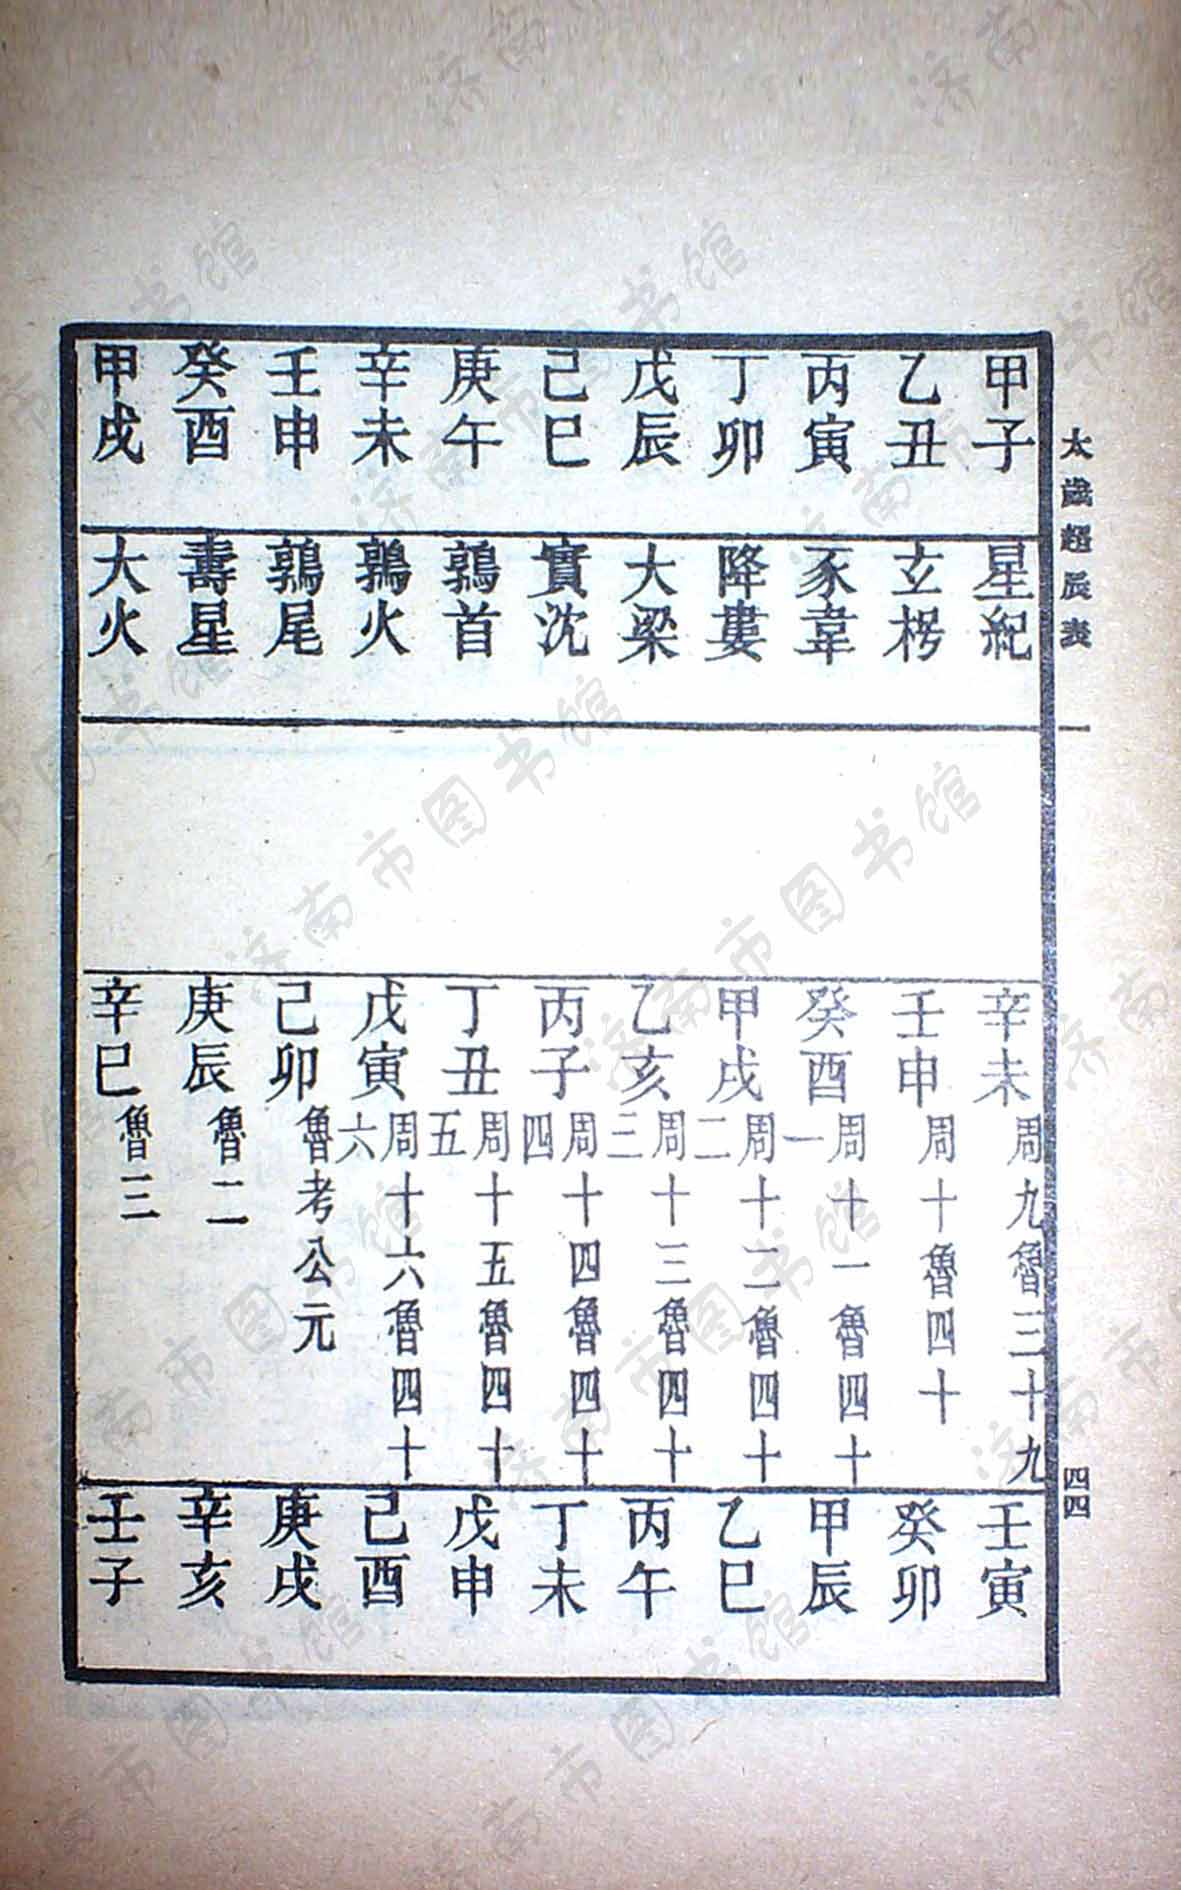 太歲超辰表
四四
甲子
乙丑
丙寅
丁卯
戊辰
己巳
庚午
辛未
壬申
癸酉
甲戌
星紀
玄枵
豕韋
降婁
大梁
實沈
鶉首
鶉火
鶉尾
壽星
大火
辛未 周九魯三十九
壬申 周十魯四十
癸酉 周十一魯四十
一
甲戌 周十二魯四十
二
乙亥 周十三魯四十
三
丙子 周十四魯四十
四
丁丑 周十五魯四十
五
戊寅 周十六魯四十
六
己卯 魯考公元
庚辰 魯二
辛巳 魯三
壬寅
癸卯
甲辰
乙巳
丙午
丁未
戊申
己酉
庚戌
辛亥
壬子
济南市图书馆